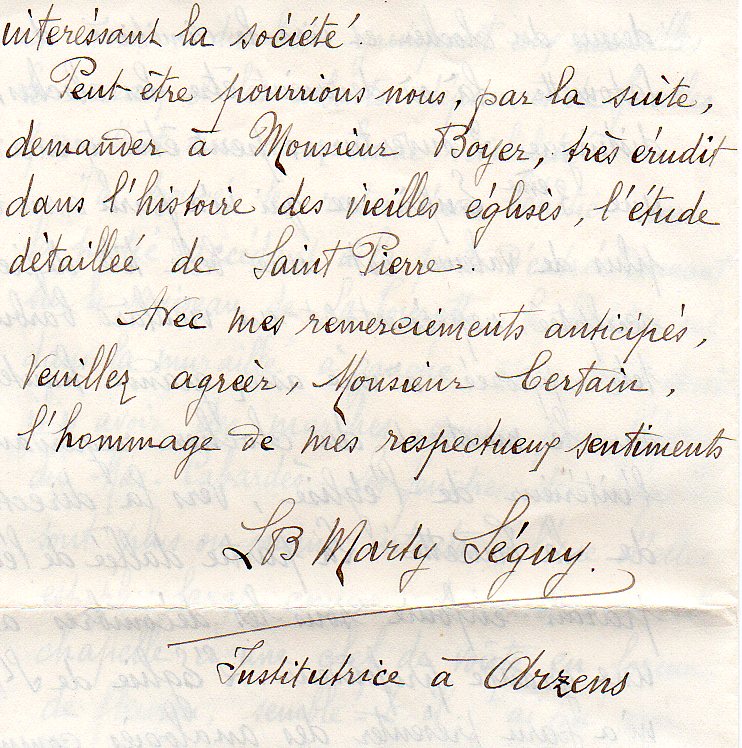 intéressant la société.
Peut-être pourrions nous, par la suite,
demander à Monsieur Boyer, très érudit
dans l'histoire des vieilles églises, l'étude
détaillée de Saint Pierre.
Avec mes remerciements anticipés,
Veuillez agréer, Monsieur Certain,
l'hommage de mes respectueux sentiments
LB Marty Séguy.
Institutrice à Arzens